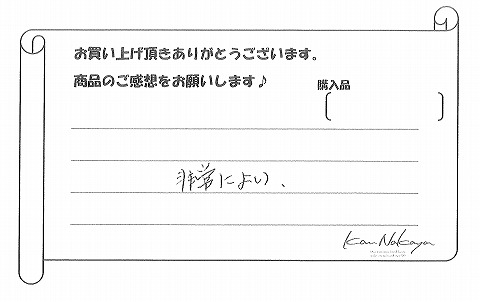 お買い上げ頂きありがとうございます。
商品のご感想をお願いします♪
購入品
〔 〕
非常によい、
Kan Nakaya